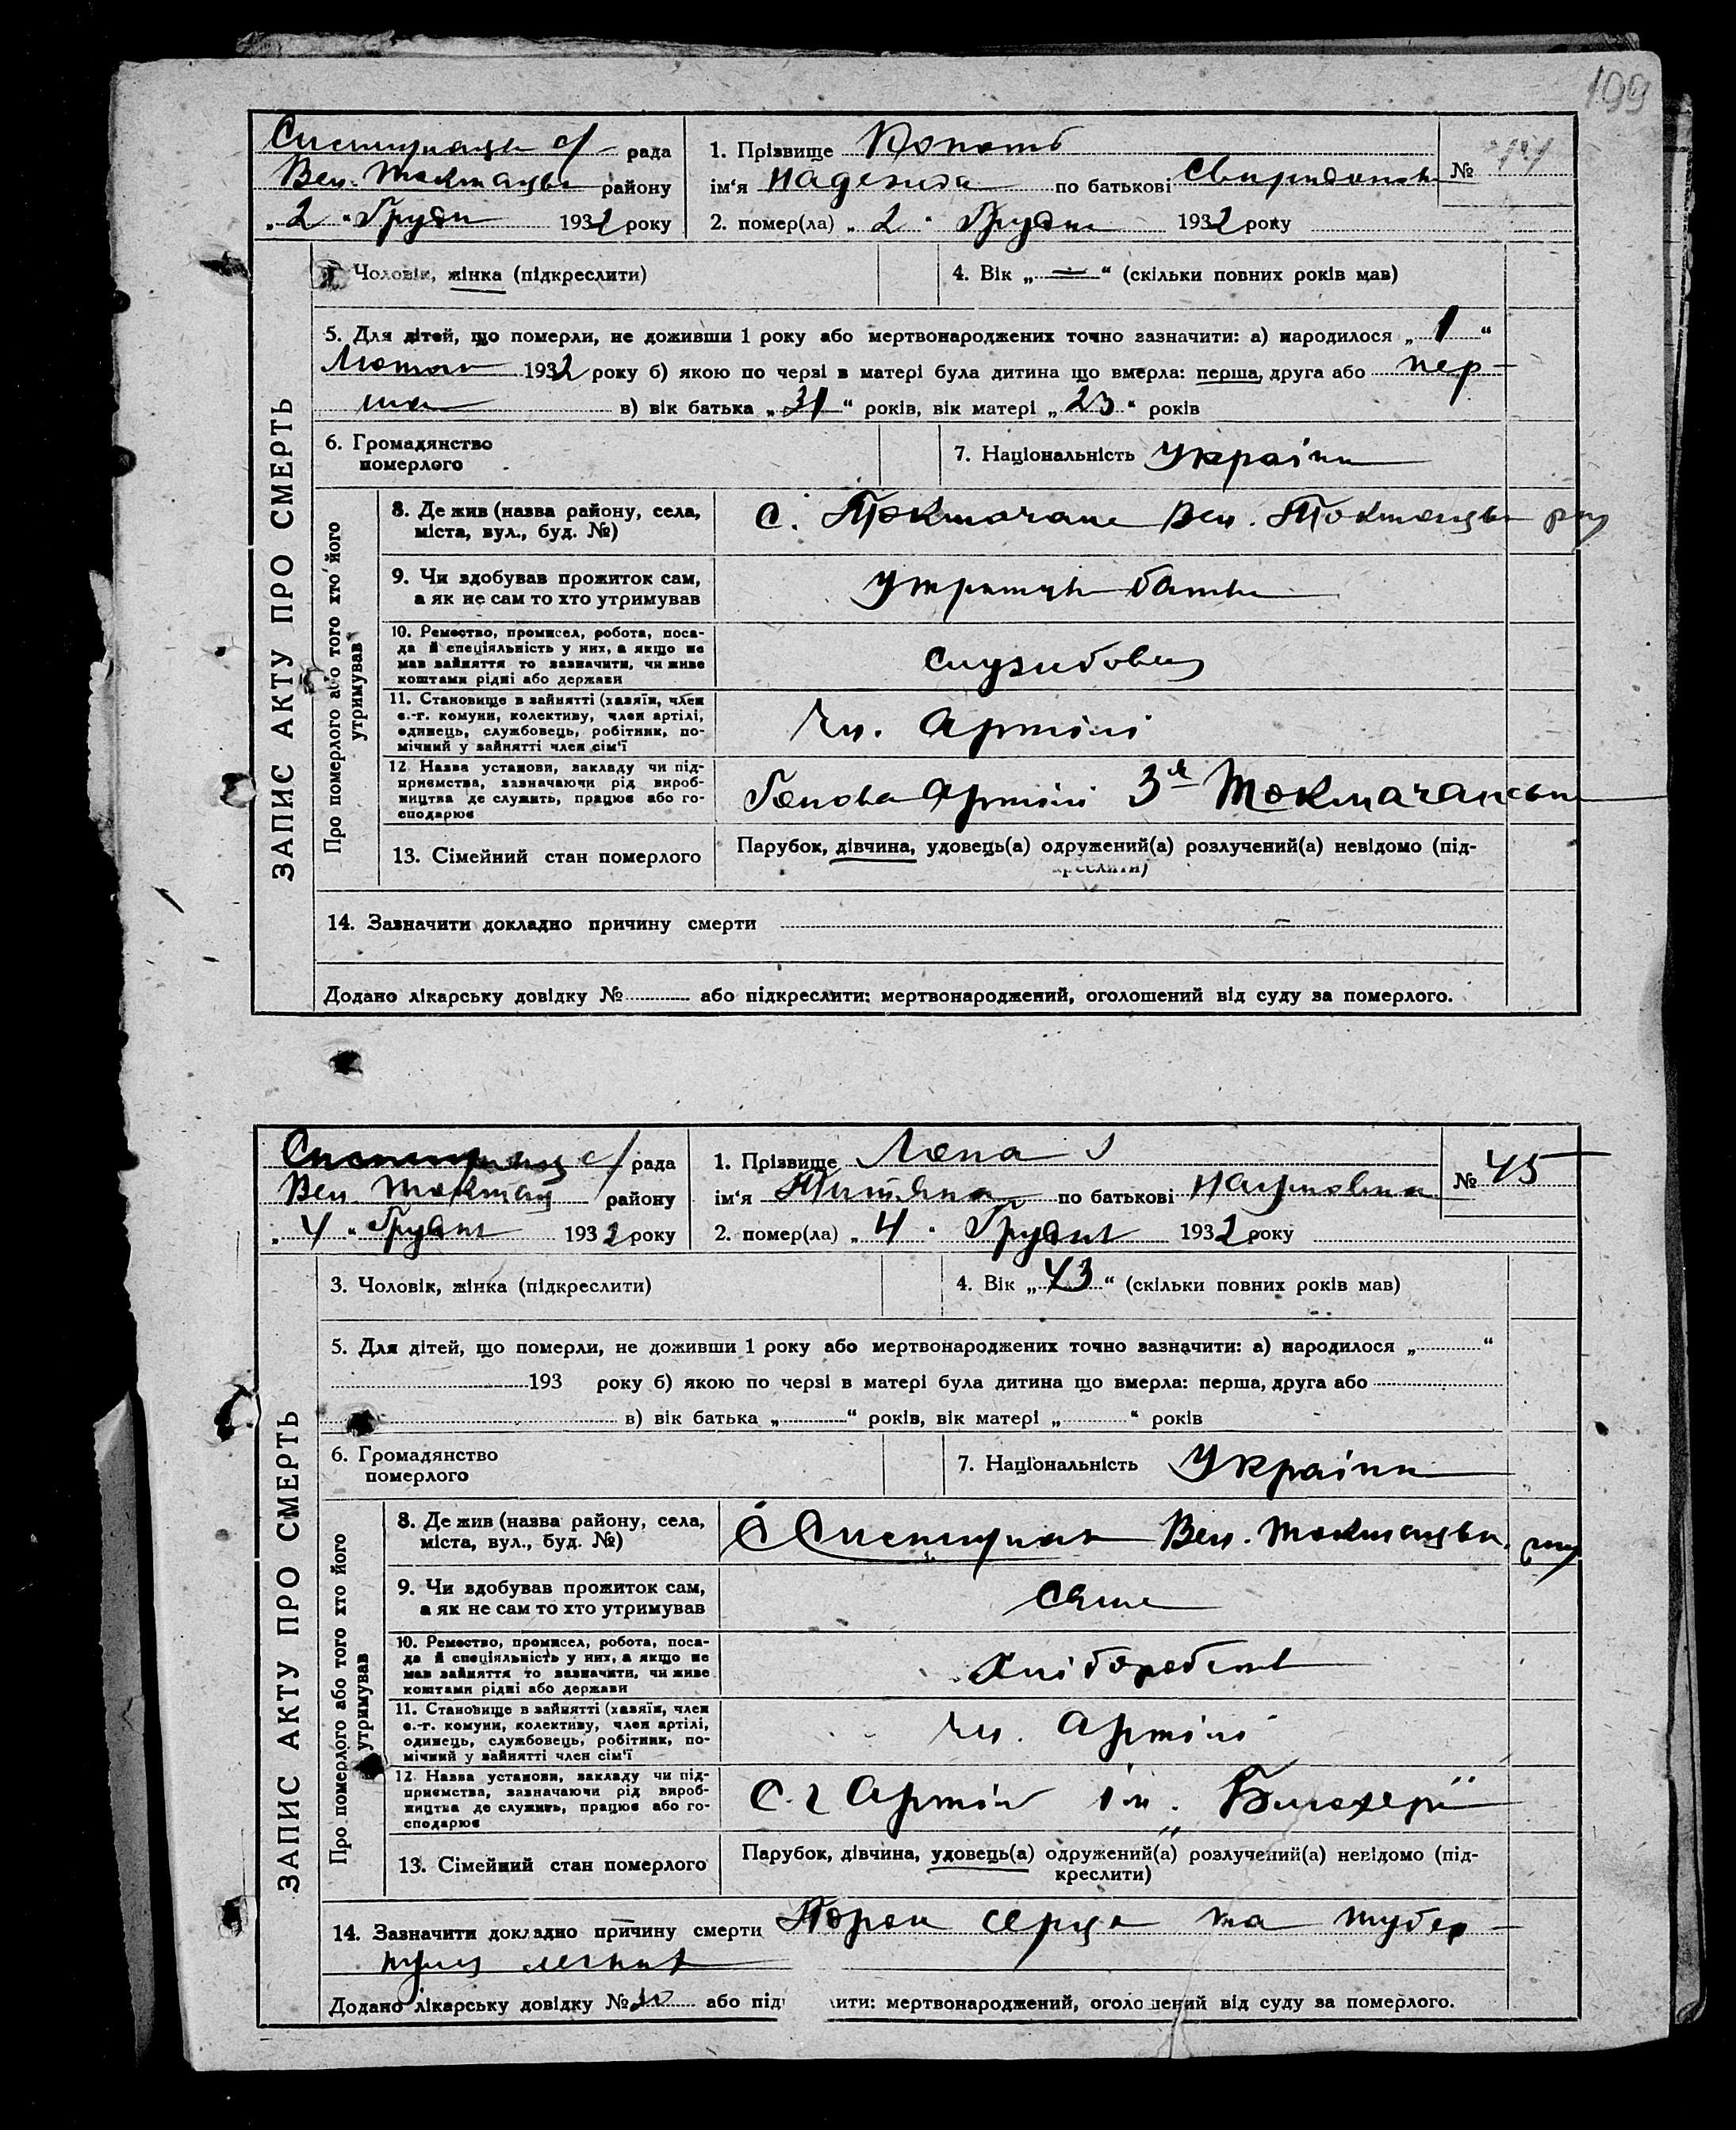 199
рада
Вел. району
„ 2 " Грудн 1932 року
1. Прізвище
ім'я Надежда по батькові
№
2. помер(ла) „ 2 " Грудн 1932 року
ЗАПИС АКТУ ПРО СМЕРТЬ
Чоловік, жінка (підкреслити)
4. Вік „ — " (скільки повних років мав)
5. Для дітей, що померли, не доживши 1 року або мертвонароджених точно зазначити: а) народилося „ 1 "
Лютого 1932 року б) якою по черзі в матері була дитина що вмерла: перша, друга або пер-
ша в) вік батька „ 31 " років, вік матері „ 23 " років
6. Громадянство
померлого
7. Національність Україн
Про померлого або того хто його
утримував
8. Де жив (назва району, села,
міста, вул., буд. №)
с. Токмачане Вел. Токмацьк
9. Чи здобував прожиток сам,
а як не сам то хто утримував
батьк
10. Ремество, промисел, робота, поса-
да й спеціяльність у них, а якщо не
мав зайняття то зазначити, чи живе
коштами рідні або держави
службовец
11. Становище в зайнятті (хазяїн, член
с.-г. комуни, колективу, член артілі,
одинець, службовець, робітник, по-
мічний у зайнятті член сім'ї
чл. артілі
12. Назва установи, закладу чи під-
приємства, зазначаючи рід вироб-
ництва де служить, працює або го-
сподарює
Голова артілі 3я Токмачанськ
13. Сімейний стан померлого
Парубок, дівчина, удовець(а) одружений(а) розлучений(а) невідомо (під-
креслити)
14. Зазначити докладно причину смерти —
Додано лікарську довідку № або підкреслити: мертвонароджений, оголошений від суду за померлого.
рада
Вел. Токмац району
„ 4 " Грудн 1932 року
1. Прізвище
ім'я по батькові Наумовна
№ 45
2. помер(ла) „ 4 " Грудн 1932 року
ЗАПИС АКТУ ПРО СМЕРТЬ
3. Чоловік, жінка (підкреслити)
4. Вік „ 43 " (скільки повних років мав)
5. Для дітей, що померли, не доживши 1 року або мертвонароджених точно зазначити: а) народилося „ "
193 року б) якою по черзі в матері була дитина що вмерла: перша, друга або
в) вік батька „ " років, вік матері „ " років
6. Громадянство
померлого
7. Національність Україн
Про померлого або того хто його
утримував
8. Де жив (назва району, села,
міста, вул., буд. №)
с Вел. Токмацьк
9. Чи здобував прожиток сам,
а як не сам то хто утримував
сама
10. Ремество, промисел, робота, поса-
да й спеціяльність у них, а якщо не
мав зайняття то зазначити, чи живе
коштами рідні або держави
Хлібороб
11. Становище в зайнятті (хазяїн, член
с.-г. комуни, колективу, член артілі,
одинець, службовець, робітник, по-
мічний у зайнятті член сім'ї
чл. артілі
12. Назва установи, закладу чи під-
приємства, зазначаючи рід вироб-
ництва де служить, працює або го-
сподарює
С.г артіль ім.
13. Сімейний стан померлого
Парубок, дівчина, удовець(а) одружений(а) розлучений(а) невідомо (під-
креслити)
14. Зазначити докладно причину смерти Порок серця та тубер-
кульоз легких
Додано лікарську довідку № або під лити: мертвонароджений, оголошений від суду за померлого.